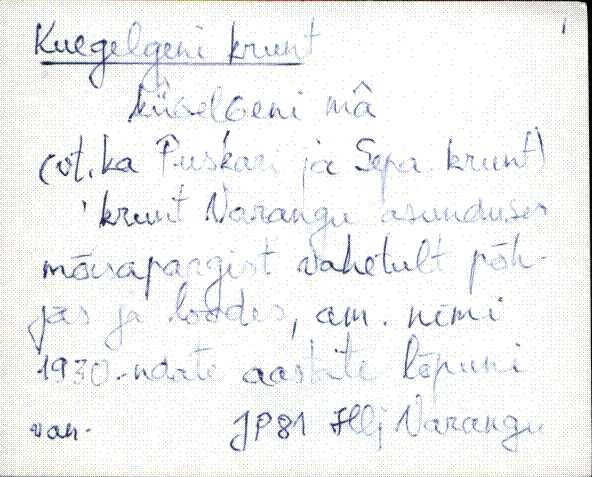 Kuegelgeni krunt
küGelGeni mâ
(vt. ka Puskari ja Sepa krunt)
krunt Varangu asunduses
mõisapargist vahetult põh-
jas ja loodes, am. nimi
1930.-ndate aastate lõpuni
van. JP81 HIj Varangu